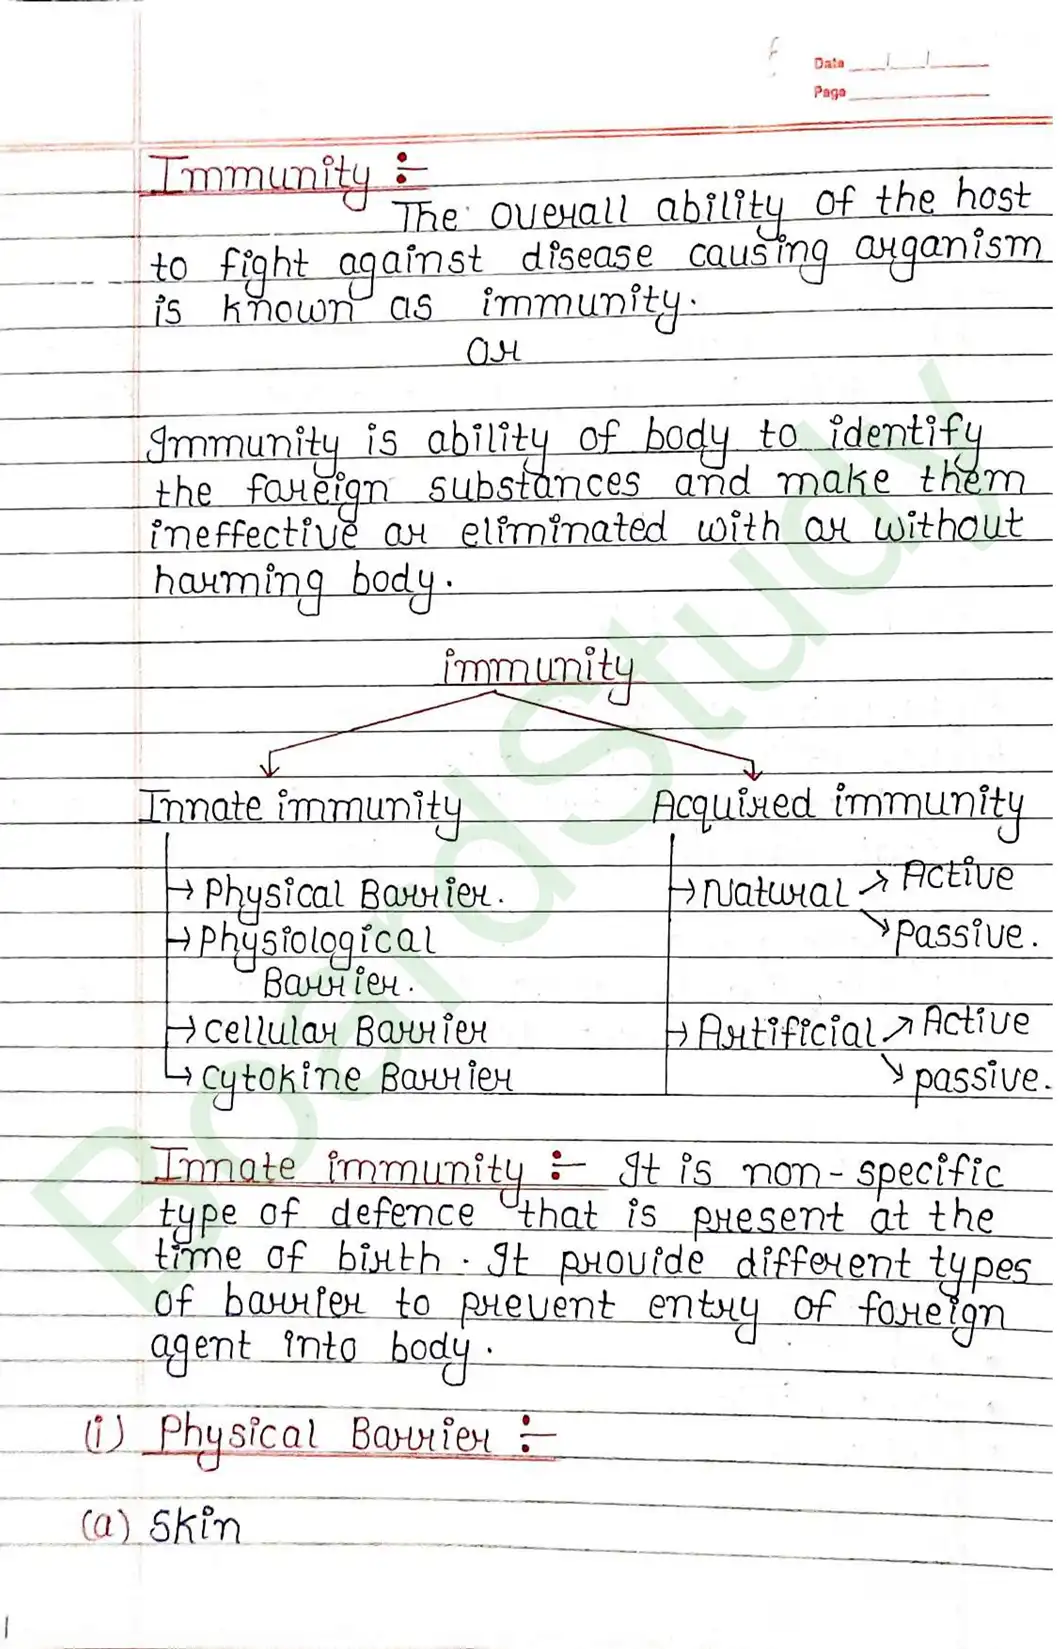 Date
Page
Immunity :-
The overall ability of the host
to fight against disease causing organism
is known as immunity.
or
Immunity is ability of body to identify
the foreign substances and make them
ineffective or eliminated with or without
harming body.
immunity
Innate immunity Acquired immunity
→ Physical Barrier. → Natural ↗ Active
→ Physiological ↘ Passive.
Barrier.
→ cellular Barrier → Artificial ↗ Active
→ cytokine Barrier ↘ passive.
Innate immunity :- It is non-specific
type of defence that is present at the
time of birth. It provide different types
of barrier to prevent entry of foreign
agent into body.
(i) Physical Barrier :-
(a) Skin
BoardStudy